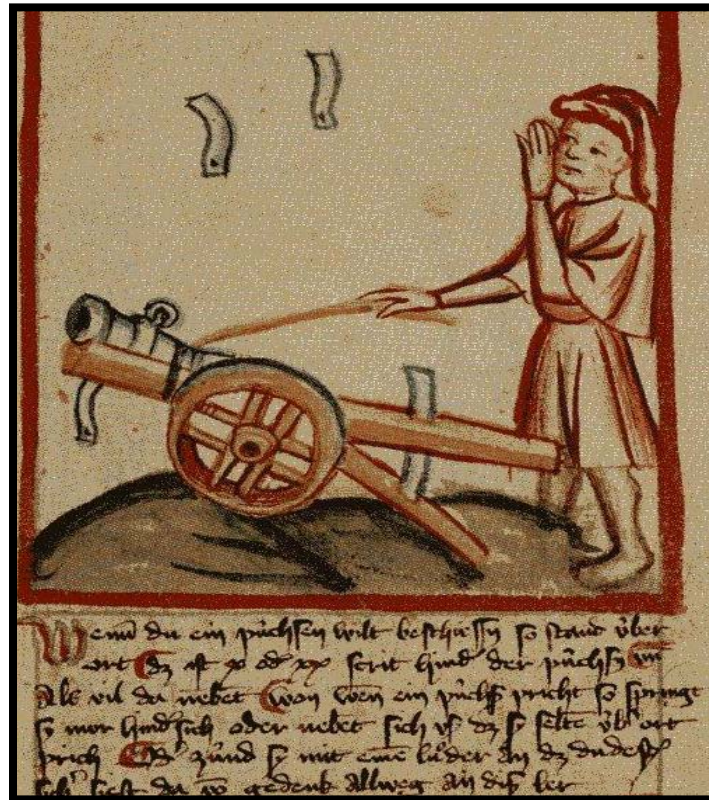 Wenn du ein püchsen wilt beschiessn so stand über
ort dz ist x od xx scrit hind der püchsn un
Als vil da nebet won wen ein püchs pricht so springt
sy nor hind sich oder nebet sich us dz sy selte vb ort
prich zünd sy mit eine luder an dz du dest
da gedenk Allweg An diß ler